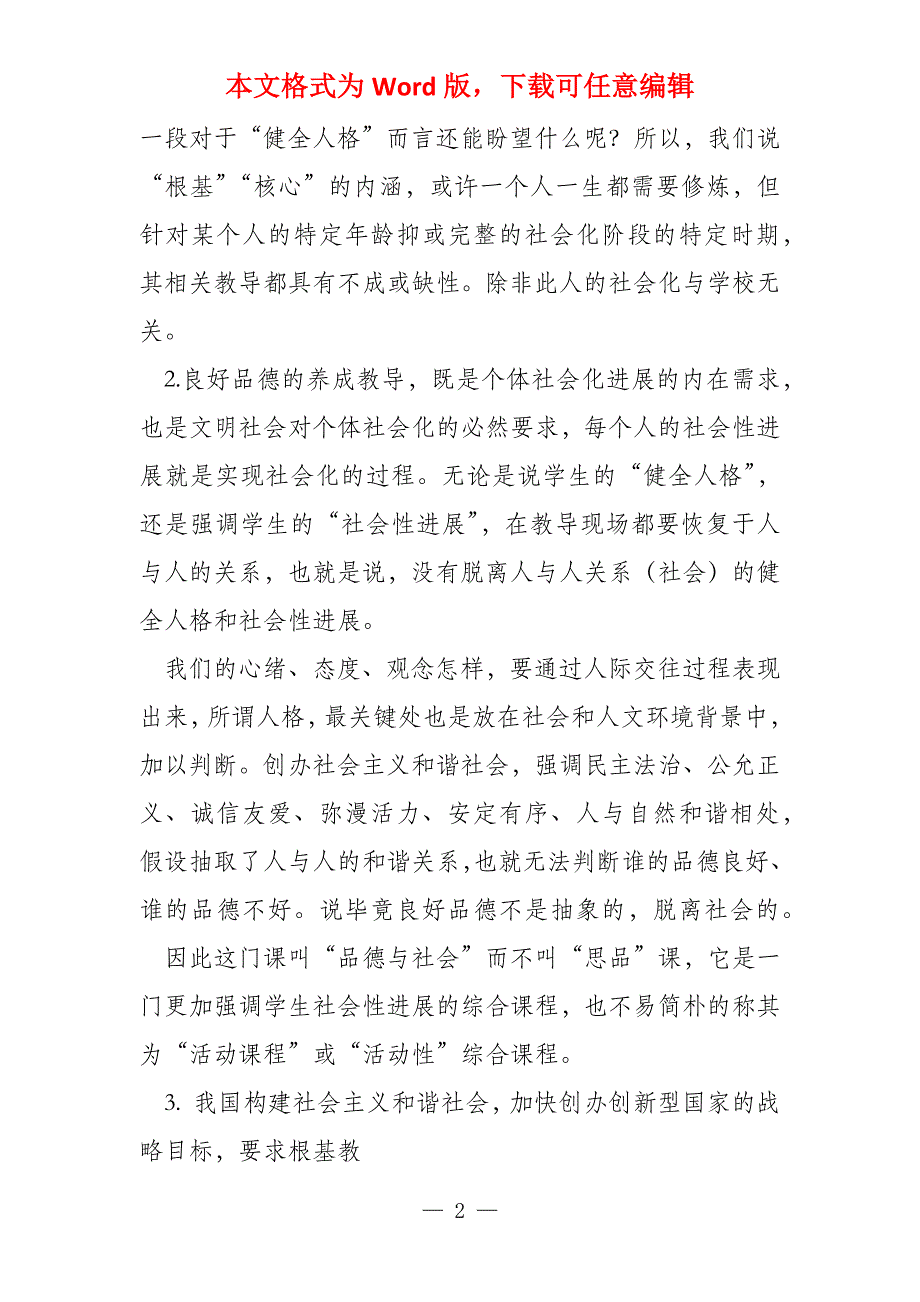 本文格式为 Word 版，下载可任意编辑
一段对于“健全人格”而言还能盼望什么呢？所以，我们说
“根基”“核心”的内涵，或许一个人一生都需要修炼，但
针对某个人的特定年龄抑或完整的社会化阶段的特定时期，
其相关教导都具有不成或缺性。除非此人的社会化与学校无
关。
2.良好品德的养成教导，既是个体社会化进展的内在需求，
也是文明社会对个体社会化的必然要求，每个人的社会性进
展就是实现社会化的过程。无论是说学生的“健全人格”，
还是强调学生的“社会性进展”，在教导现场都要恢复于人
与人的关系，也就是说，没有脱离人与人关系（社会）的健
全人格和社会性进展。
我们的心绪、态度、观念怎样，要通过人际交往过程表现
出来，所谓人格，最关键处也是放在社会和人文环境背景中，
加以判断。创办社会主义和谐社会，强调民主法治、公允正
义、诚信友爱、弥漫活力、安定有序、人与自然和谐相处，
假设抽取了人与人的和谐关系，也就无法判断谁的品德良好、
谁的品德不好。说毕竟良好品德不是抽象的，脱离社会的。
因此这门课叫“品德与社会”而不叫“思品”课，它是一
门更加强调学生社会性进展的综合课程，也不易简朴的称其
为“活动课程”或“活动性”综合课程。
3. 我国构建社会主义和谐社会，加快创办创新型国家的战
略目标，要求根基教
— 2 —